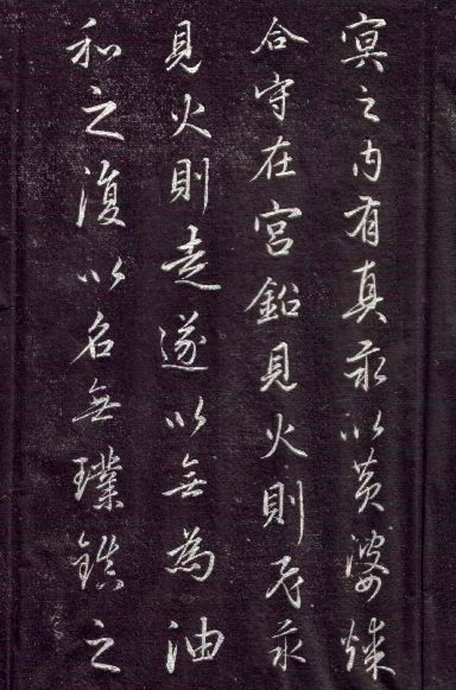 冥之内有真汞以黄婆煉
合守在宮鉛見火則飛汞
見火則走遂以無為油
和之復以名無璞鎮之